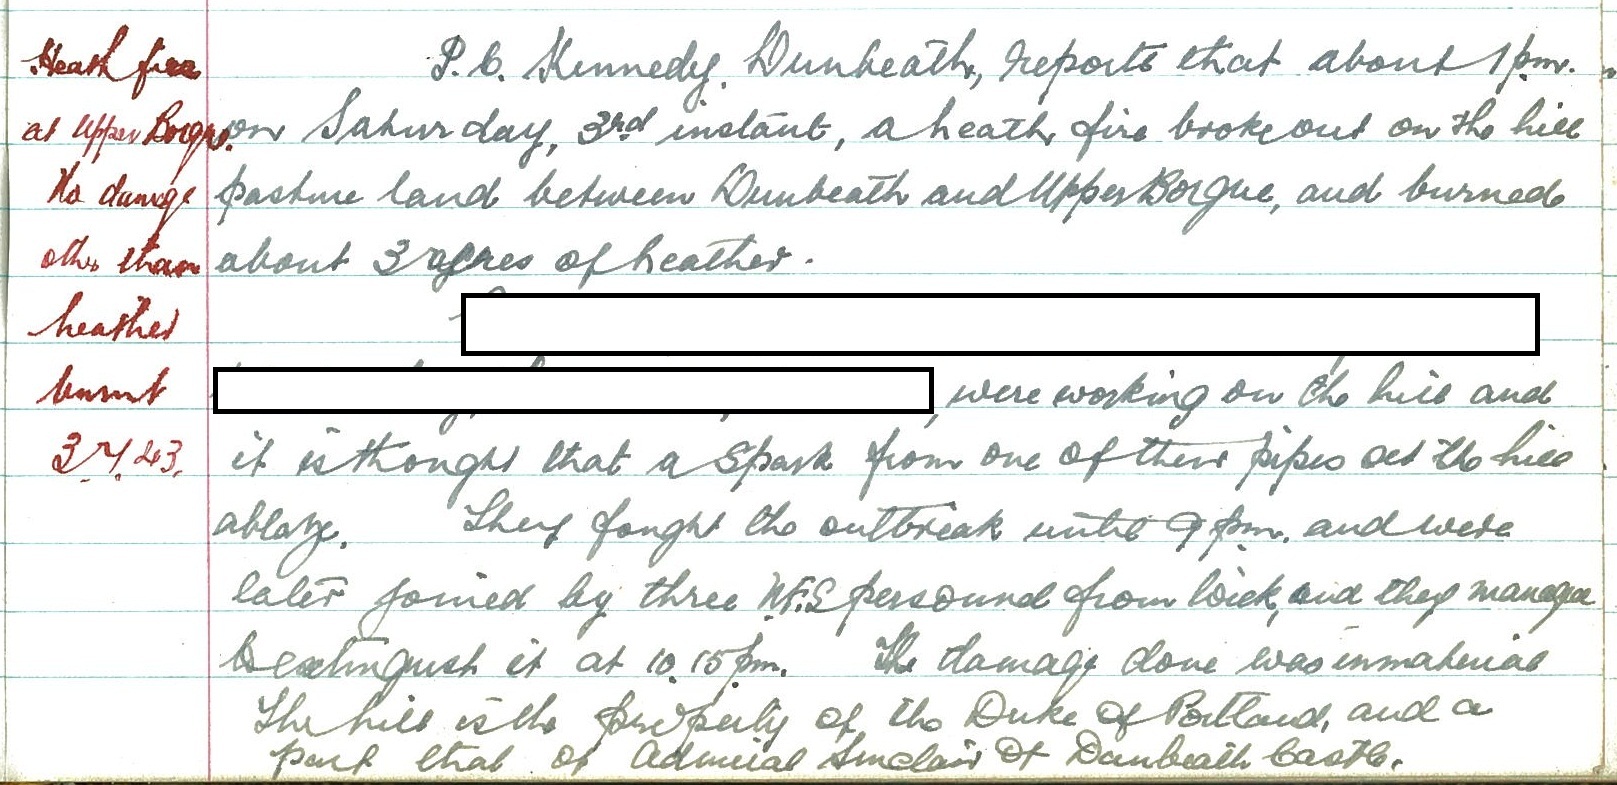 Heath fire
at Upper Borgue.
No damage
other than
heather
burnt
3.7.43.
P.C. Kennedy, Dunbeath, reports that about 1 pm.
on Saturday, 3rd instant, a heath fire broke out on the hill
pasture land between Dunbeath and Upper Borgue, and burned
about 3 acres of heather.
, were working on the hill and
it is thought that a spark from one of their pipes set the hill
ablaze. They fought the outbreak until 9 pm. and were
later joined by three N.F.S. personnel from Wick, and they managed
to extinguish it at 10.15 pm. The damage done was immaterial
The hill is the property of the Duke of Portland, and a
part that of Admiral Sinclair of Dunbeath Castle.